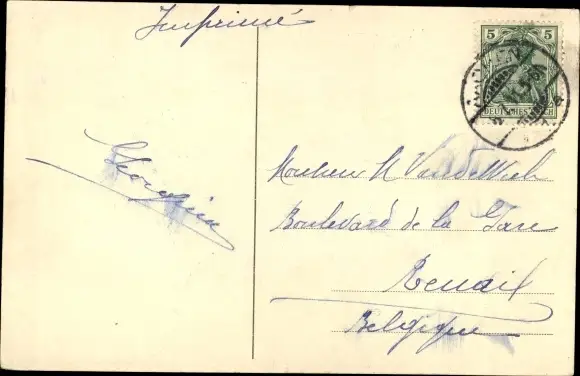 Imprimé
5 5
DEUTSCHES REICH
Georgine
Monsieur H Vandewiele
Boulevard de la Gare
Renaix
Belgique